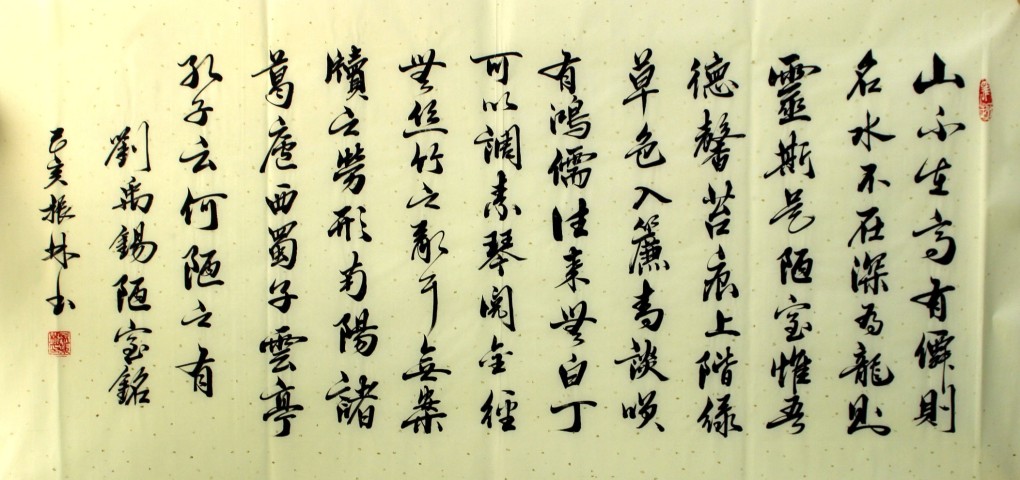 山不在高有僊則
名水不在深為龍則
靈斯是陋室惟吾
德馨苔痕上階緑
草色入簾青談咲
有鴻儒往来無白丁
可以調素琴閲金經
無丝竹之亂耳無案
牘之勞形南陽諸
葛廬西蜀子雲亭
孔子云何陋之有
劉禹錫陋室銘
己亥振林书